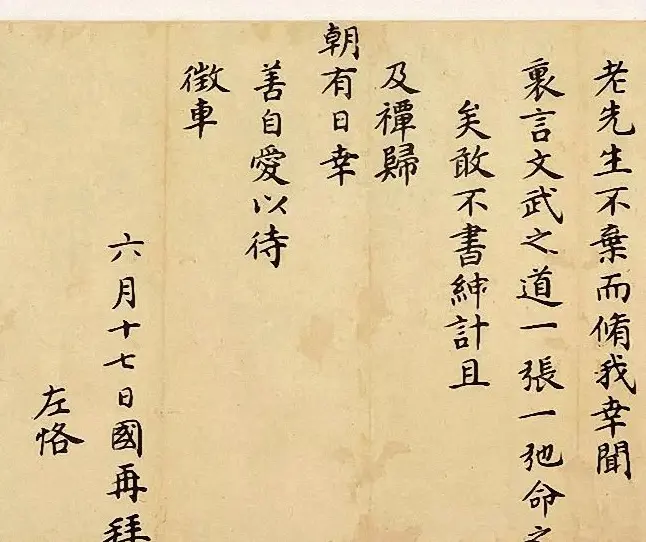 老先生不棄而脩我幸聞
裏言文武之道一張一弛命之
矣敢不書紳計且
及禫歸
朝有日幸
善自愛以待
徵車
六月十七日國再拜
左恪